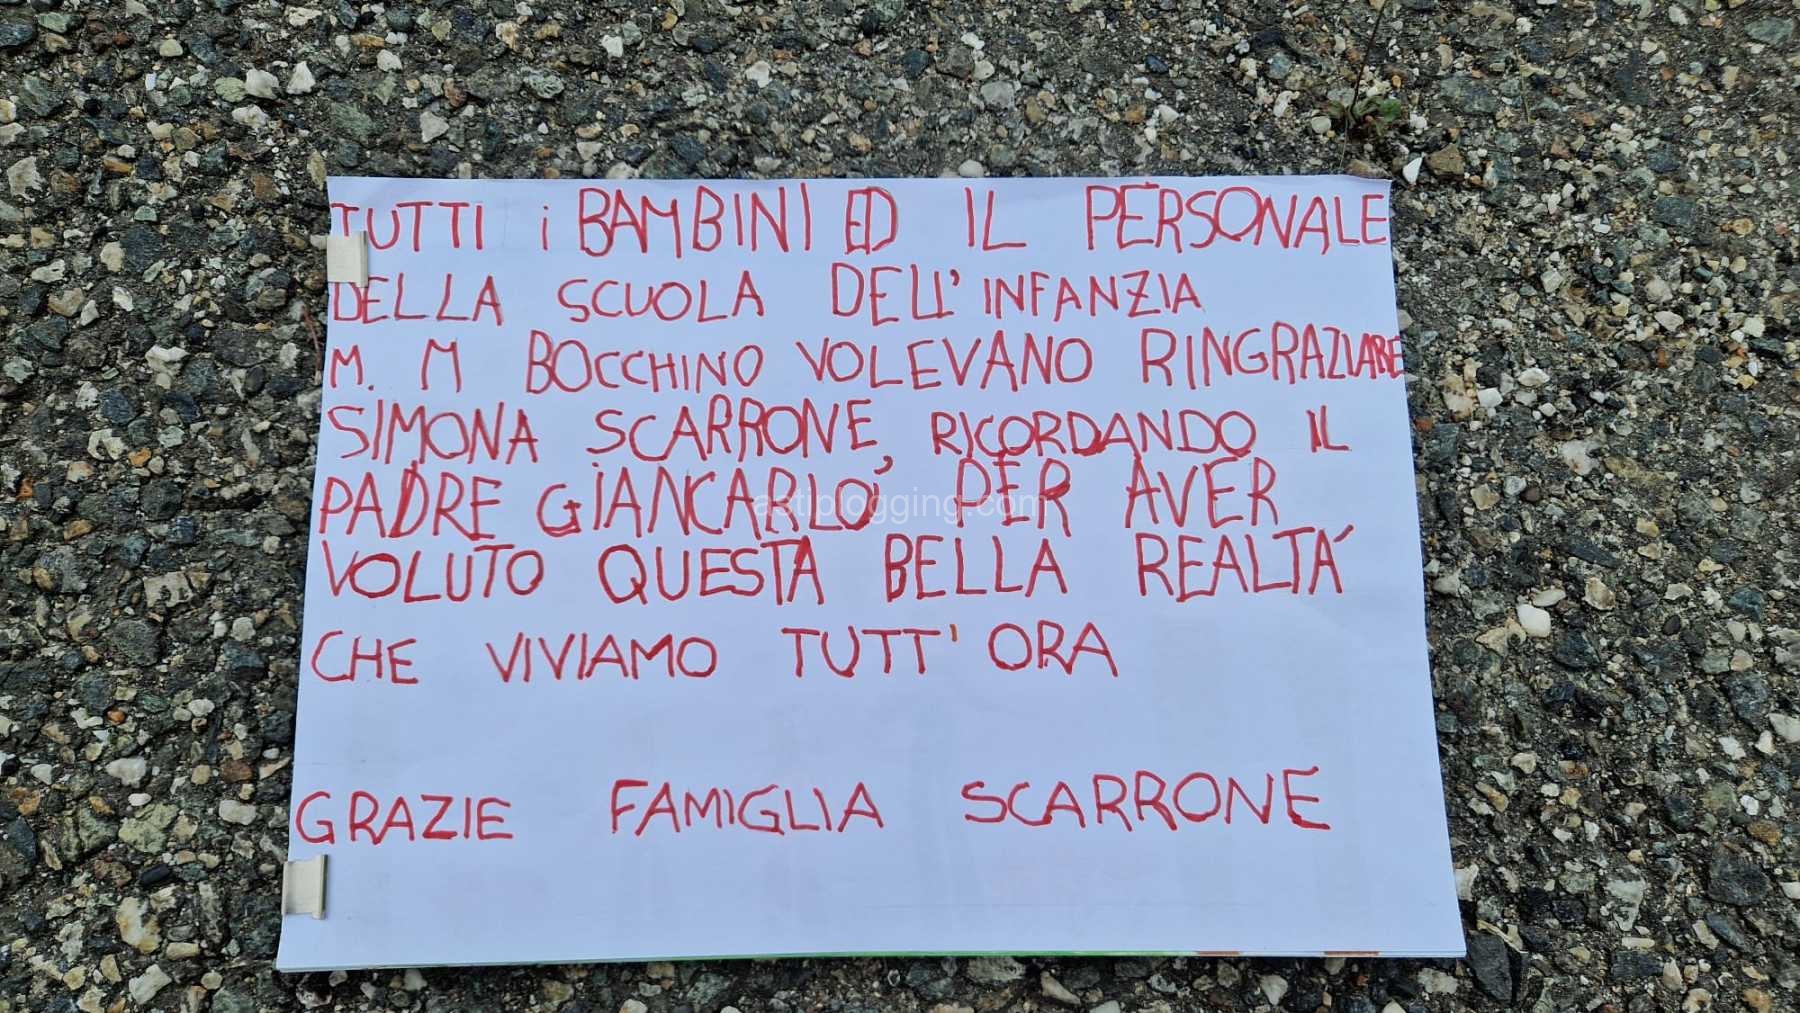 TUTTI i BAMBINI ED IL PERSONALE
DELLA SCUOLA DELL'INFANZIA
M. M BOCCHINO VOLEVANO RINGRAZIARE
SIMONA SCARRONE, RICORDANDO IL
PADRE GIANCARLO, PER AVER
VOLUTO QUESTA BELLA REALTÁ
CHE VIVIAMO TUTT'ORA
GRAZIE FAMIGLIA SCARRONE
astiplogging.com